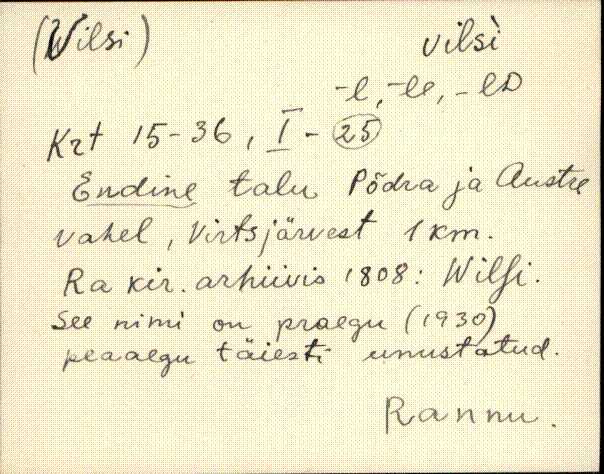 (Wilsi) vilsì
-l, -le, -lD
Krt 15-36, I - 25
Endine talu Põdra ja Austre
vahel, Virtsjärvest 1 km.
Ra kir. arhiivis 1808: Wilſi.
See nimi on praegu (1930)
peaaegu täiesti unustatud.
Rannu.